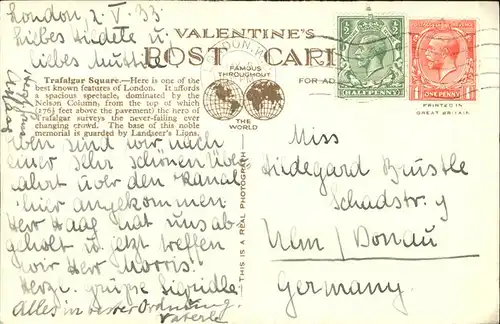 London 2. V. 33.
Liebes Hildile u.
liebes Mutterle
VALENTINE'S
POST CARD
FAMOUS
THROUGHOUT
THE
WORLD
FOR AD
HALFPENNY
ONE PENNY
PRINTED IN
GREAT BRITAIN.
THIS IS A REAL PHOTOGRAPH
Trafalgar Square.—Here is one of the
best known features of London. It affords
a spacious spectacle, dominated by the
Nelson Column, from the top of which
(176½ feet above the pavement) the hero of
Trafalgar surveys the never-failing ever
changing crowd. The base of this noble
memorial is guarded by Landseer's Lions.
Eben sind wir nach
einer sehr schönen Über
fahrt über den Kanal
hier angekommen
Herr Haag hat uns ab-
geholt u. jetzt treffen
wir Herr Morris.
Herzl. Grüsse Sigridle
Alles in bester Ordnung.
Vaterle
Miss
Hildegard
Schadstr. 9
Ulm / Donau
Germany.